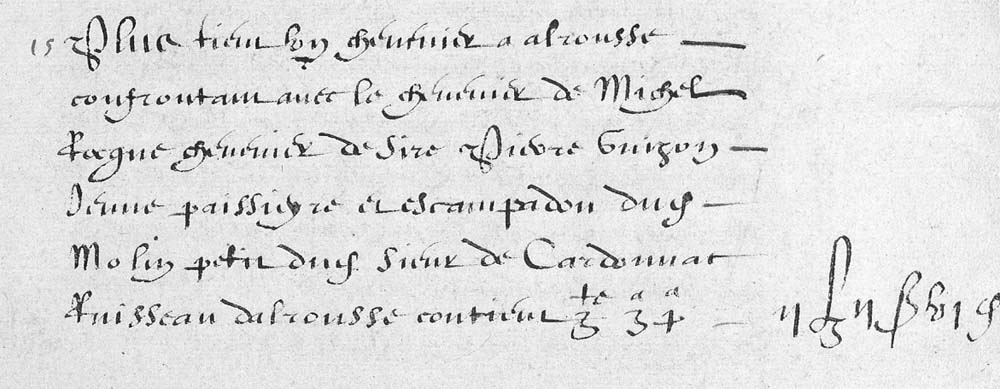 15 Plus tient vng chenevier a alrousse
confrontant avec le chenevier de Michel
Rocque chenevier de sire Pierre Guizon
Jeune paissieyre et escampadou dud
Molin petit dud sieur de Cardonnac
Ruisseau dalrousse contient 3te 3a 4a